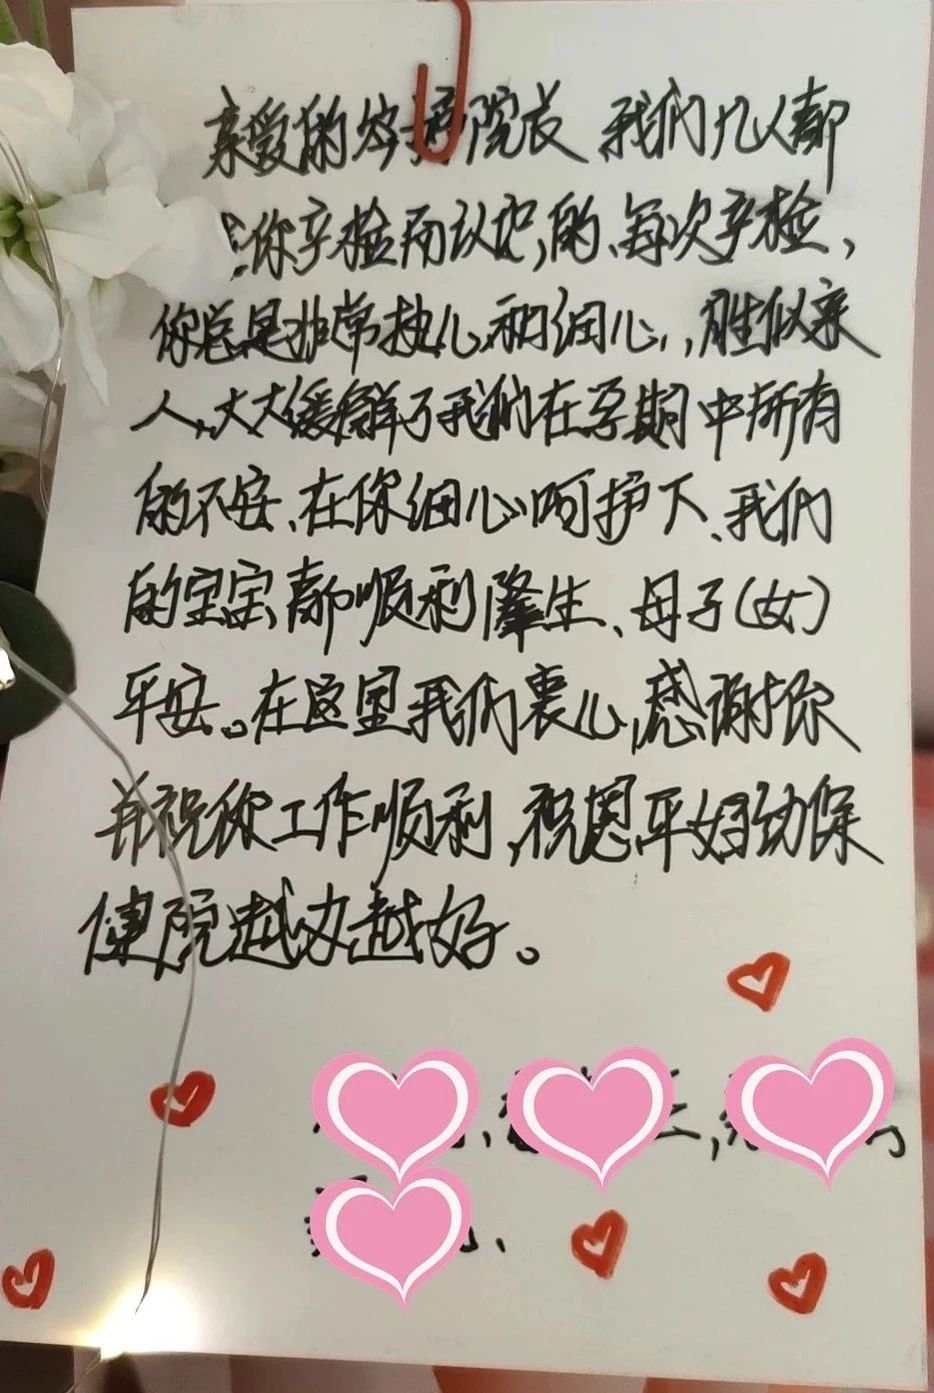 亲爱的 院长 我们几人都
你产检而认识的、每次产检，
你总是非常热心和细心，，胜似亲
人，大大缓解了我们在孕期中所有
的不安、在你细心呵护下、我们
的宝宝都顺利降生、母子（女）
平安。在这里我们衷心感谢你
并祝你工作顺利，祝恩平妇幼保
健院越办越好。